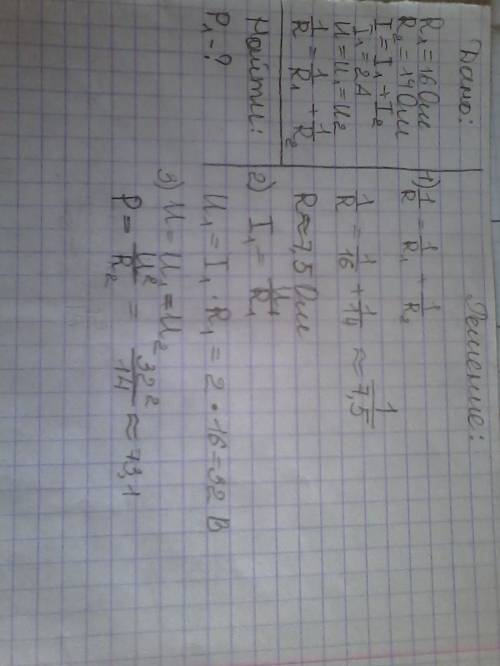 Дано:
R₁ = 16 Ом
R₂ = 14 Ом
I = I₁ + I₂
I₁ = 2А
U = U₁ = U₂
1/R = 1/R₁ + 1/R₂
Найти:
P₁ - ?
Решение:
1) 1/R = 1/R₁ + 1/R₂
1/R = 1/16 + 1/14 ≈ 1/7,5
R ≈ 7,5 Ом
2) I₁ = U₁/R₁
U₁ = I₁ · R₁ = 2 · 16 = 32 В
3) U = U₁ = U₂
P = U²/R₂ = 32²/14 ≈ 73,1